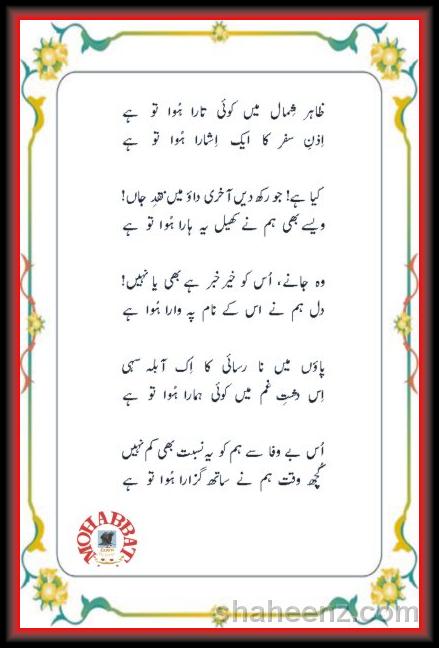 ظاہر شِمال میں کوئی تارا ہُوا تو ہے
اِذنِ سفر کا ایک اِشارا ہُوا تو ہے
کیا ہے! جو رکھ دیں آخری داؤ میں نقدِ جاں!
ویسے بھی ہم نے کھیل یہ ہارا ہُوا تو ہے
وہ جانے، اُس کو خیر خبر ہے بھی یا نہیں!
دل ہم نے اس کے نام پہ وارا ہُوا تو ہے
پاؤں میں نا رسائی کا اِک آبلہ سہی
اِس دشتِ غم میں کوئی ہمارا ہُوا تو ہے
اُس بے وفا سے ہم کو یہ نسبت بھی کم نہیں
کُچھ وقت ہم نے ساتھ گزارا ہُوا تو ہے
MOHABBAT
shaheenz.com